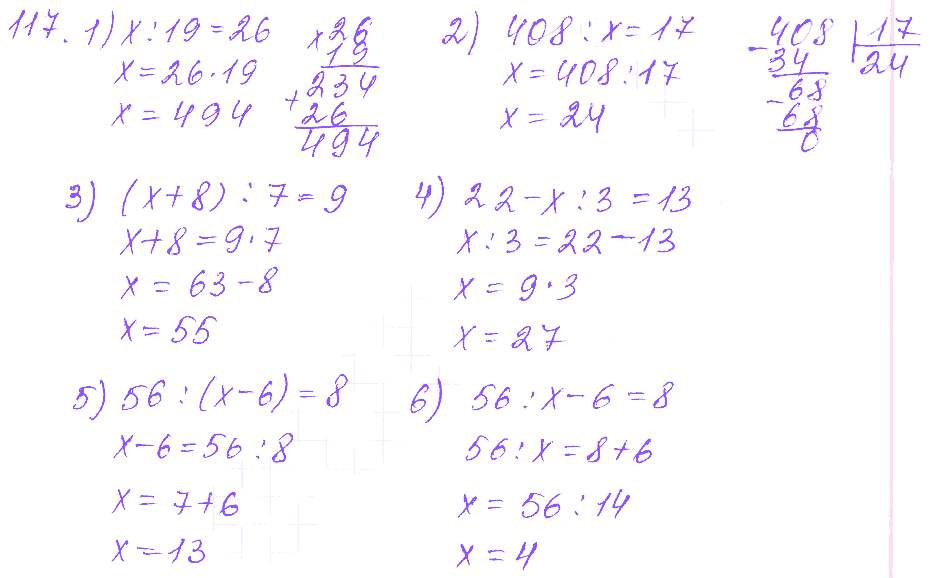 117. 1) x : 19 = 26
x = 26 · 19
x = 494
× 26
19
234
+
26
494
2) 408 : x = 17
x = 408 : 17
x = 24
- 408 | 17
34 24
68
- 68
0
3) (x + 8) : 7 = 9
x + 8 = 9 · 7
x = 63 - 8
x = 55
4) 22 - x : 3 = 13
x : 3 = 22 - 13
x = 9 · 3
x = 27
5) 56 : (x - 6) = 8
x - 6 = 56 : 8
x = 7 + 6
x = 13
6) 56 : x - 6 = 8
56 : x = 8 + 6
x = 56 : 14
x = 4